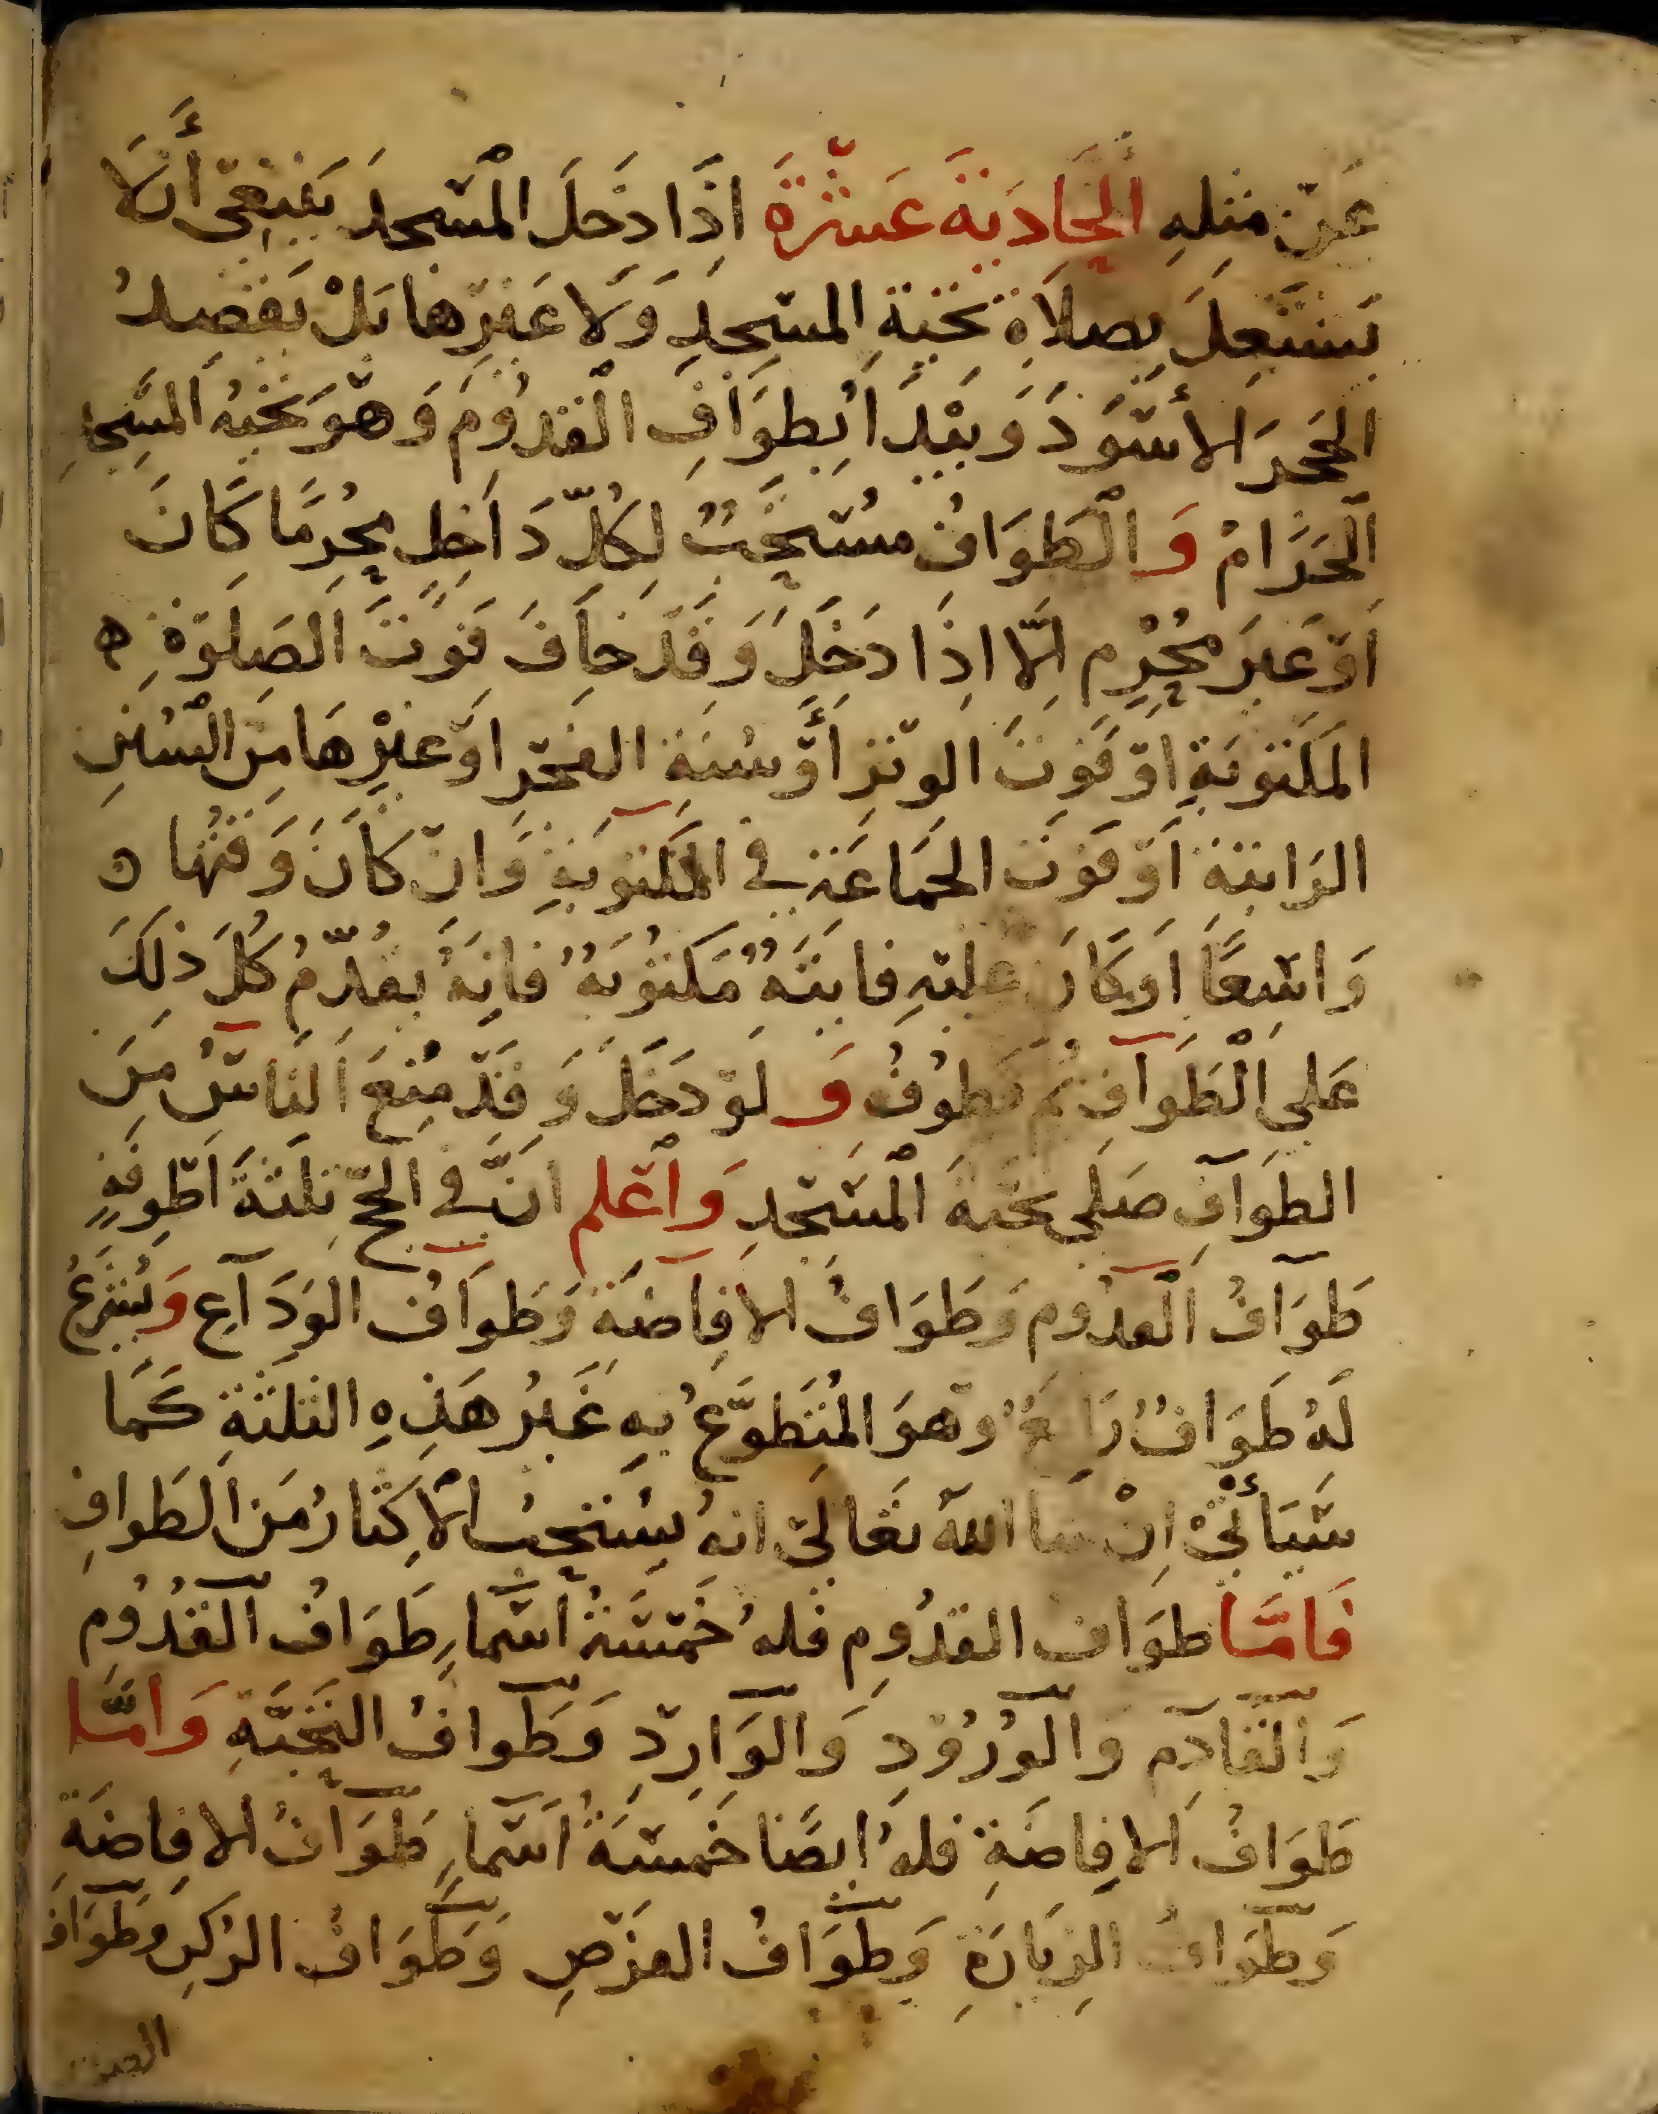 عَنْ مثلِهِ الحَادِيَةَ عَشْرَةَ اِذَا دَخَلَ الْمسْجِدَ يَنبَغِى أَن لَا
يَشْتَغِلَ بِصلَاةِ تَحَيةِ المسْجِدِ وَلَا غَيرِها بَلْ يَقصدُ
الحَجرَ الأَسْوَدَ وَيَبْدَأ بِطوَافِ الْقدُومِ وَهُوَ تَحيةُ المسْجِدِ
الْحَرَامْ وَالْطوَافُ مسْتحَبٌ لِكُلّ دَاخِلٍ مُحْرِمًا كَانَ
اَوْ غَيرَ مُحْرِمٍ اِلَّا اِذَا دَخَلَ وَقَدْ خَافَ فَوْتَ الصَلَوْةِ ه
المَكتوبَةِ اوْ فَوْتَ الوتْرِ أَوْ سُنَةِ الفَجْرِ اَوْ غَيْرِهَا مِنَ الْسُنَنِ
الرَاتبَةِ اَوْ فَوْتَ الجَمَاعَةِ فِي المَكتوبَةِ وَانْ كَانَ وَقتُها ه
وَاسْعًا اَوْ كَانَ عليْهِ فايتَةٌ مَكتوُبَةٌ فَانَهُ يقُدّمُ كُلَ ذلِكَ
عَلى الْطَوَافِ ثُمَ يَطوُفُ وَلَوْ دَخَلَ وَقَدْ مُنِعَ النَاسُ مِنَ
الطوَافِ صَلى تحَيةَ الْمسْجِدِ وَاعْلم انَّ فِي الحَجّ ثلَثَةَ اَطْوِفَةٍ
طَوَافُ الْقدُومِ وَطَوَافُ الافَاضَةِ وَطوَافُ الوَدَاعِ وَيُشْرَعُ
لَهُ طَوَافٌ رَابعٌ وَهوَ المُتَطَوَّعُ بِهِ غَيرُ هَذِهِ الثلَثَةِ كَمَا
سَيَأتِيْ اِنْ شا اللهُ تعَالَى انهُ يسْتَحِبُ الْاكِثَارُ مَنَ الطَوافِ
فَامَّا طوَافُ القدُومِ فلهُ خَمْسَةُ اسْمَاءٍ طَوَافُ الْقُدُومِ
وَالْقَادِمِ وَالْوُرُوْدِ وَالوَارِدِ وَطَوَافُ التَحَيَّةِ وَامَّا
طَوَافُ الافَاضَةِ فلهُ ايضًا خَمْسَةُ اَسْمَاءٍ طَوَافُ الافَاضَةِ
وَطَوَافُ الزيَارَةِ وَطَوَافُ الفرْضِ وَطَوَافُ الرُكنِ وَطوَافُ